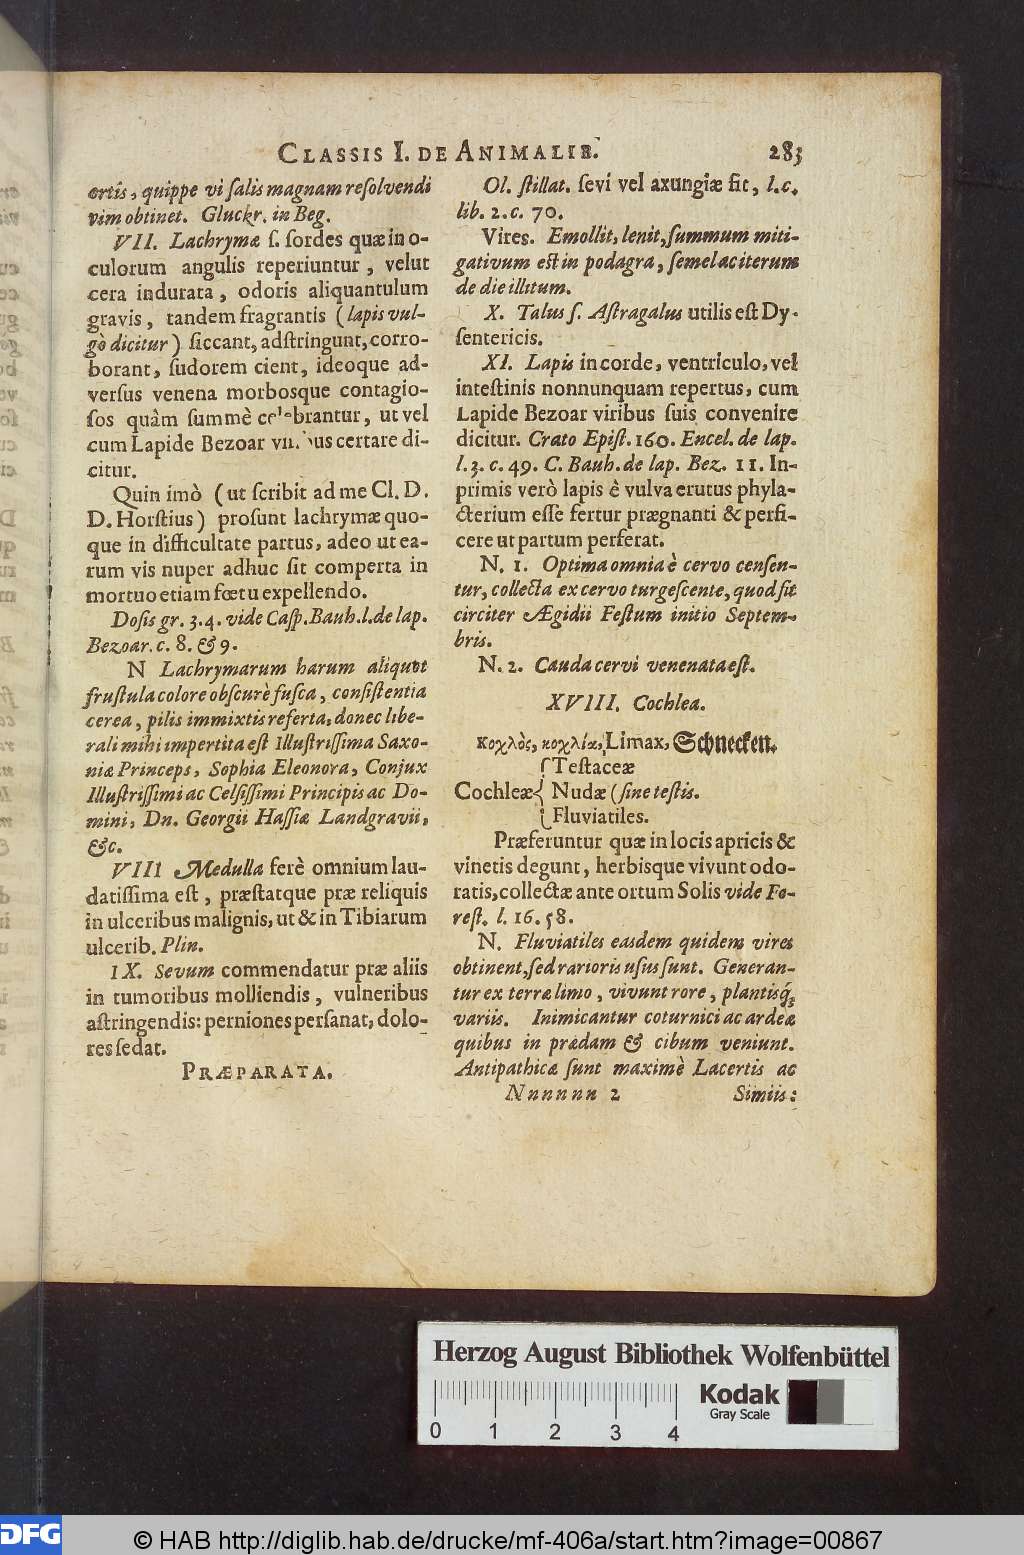 CLASSIS I. DE ANIMALIB. 283
ertis, quippe vi ſalis magnam reſolvendi
vim obtinet. Gluckr. in Beg.
VII. Lachrymæ ſ. ſordes quæ in o-
culorum angulis reperiuntur, velut
cera indurata, odoris aliquantulum
gravis, tandem fragrantis (lapis vul-
gò dicitur) ſiccant, adſtringunt, corro-
borant, ſudorem cient, ideoque ad-
verſus venena morbosque contagio-
ſos quàm ſummè celebrantur, ut vel
cum Lapide Bezoar certare di-
citur.
Quin imò (ut ſcribit ad me Cl. D.
D. Horſtius) proſunt lachrymæ quo-
que in difficultate partus, adeo ut ea-
rum vis nuper adhuc ſit comperta in
mortuo etiam fœtu expellendo.
Doſis gr. 3. 4. vide Caſp. Bauh. l. de lap.
Bezoar. c. 8. & 9.
N Lachrymarum harum aliquot
fruſtula colore obſcurè fuſca, conſiſtentia
cerea, pilis immixtis referta, donec libe-
rali mihi impertita eſt Illuſtriſſima Saxo-
niæ Princeps, Sophia Eleonora, Conjux
Illuſtriſſimi ac Celſiſſimi Principis ac Do-
mini, Dn. Georgii Haſſiæ Landgravii,
&c.
VIII Medulla ferè omnium lau-
datiſſima eſt, præſtatque præ reliquis
in ulceribus malignis, ut & in Tibiarum
ulcerib. Plin.
IX. Sevum commendatur præ aliis
in tumoribus molliendis, vulneribus
aſtringendis: perniones perſanat, dolo-
res ſedat.
PRÆPARATA.
Ol. ſtillat. ſevi vel axungiæ fit, l. c.
lib. 2. c. 70.
Vires. Emollit, lenit, ſummum miti-
gativum eſt in podagra, ſemel ac iterum
de die illitum.
X. Talus ſ. Aſtragalus utilis eſt Dy-
ſentericis.
XI. Lapis in corde, ventriculo, vel
inteſtinis nonnunquam repertus, cum
Lapide Bezoar viribus ſuis convenire
dicitur. Crato Epiſt. 160. Encel. de lap.
l. 3. c. 49. C. Bauh. de lap. Bez. 11. In-
primis verò lapis è vulva erutus phyla-
cterium eſſe fertur prægnanti & perfi-
cere ut partum perferat.
N. 1. Optima omnia è cervo cenſen-
tur, collecta ex cervo turgeſcente, quod fit
circiter Ægidii Feſtum initio Septem-
bris.
N. 2. Cauda cervi venenata eſt.
XVIII. Cochlea.
κοχλὸς, κοχλία, Limax, Schnecken.
Teſtaceæ
Cochleæ { Nudæ (ſine teſtis.
Fluviatiles.
Præferuntur quæ in locis apricis &
vinetis degunt, herbisque vivunt odo-
ratis, collectæ ante ortum Solis vide Fo-
reſt. l. 16. 58.
N. Fluviatiles easdem quidem vires
obtinent, ſed rarioris uſus ſunt. Generan-
tur ex terræ limo, vivunt rore, plantisq́;
variis. Inimicantur coturnici ac ardeæ
quibus in prædam & cibum veniunt.
Antipathicæ ſunt maximè Lacertis ac
Nnnnnn 2 Simiis:
Herzog August Bibliothek Wolfenbüttel
Kodak
Gray Scale
0 1 2 3 4
DFG
© HAB http://diglib.hab.de/drucke/mf-406a/start.htm?image=00867